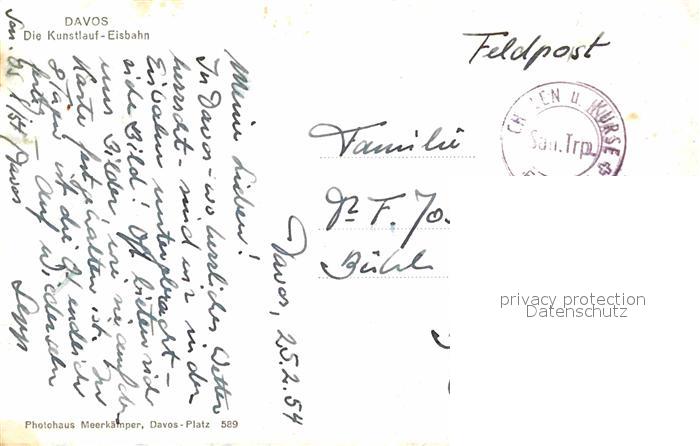 DAVOS
Die Kunstlauf-Eisbahn
Feldpost
SCHULEN u. KURSE
San. Trp.
Familie
Dr F. Jo
Bühl
Davos, 25.2.54
Meine Lieben!
In Davos - wo herrliches Wetter
herrscht - sind wir in der
Eisbahn untergebracht -
siehe Bild! Oft bieten sich
uns Bilder wie sie auf der
Karte festgehalten ist. In
8 Tagen ist die 
fertig - Auf Wiedersehn
Sepp
San. 
Davos
Photohaus Meerkämper, Davos-Platz 589
privacy protection
Datenschutz